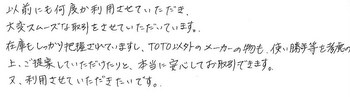 以前にも何度か利用させていただき、
大変スムーズな取引をさせていただいています。
在庫もしっかり把握されていますし、TOTO以外のメーカーの物も、使い勝手等も考慮の
上、ご提案していただけたりと、本当に安心してお取引できます。
又、利用させていただきたいです。